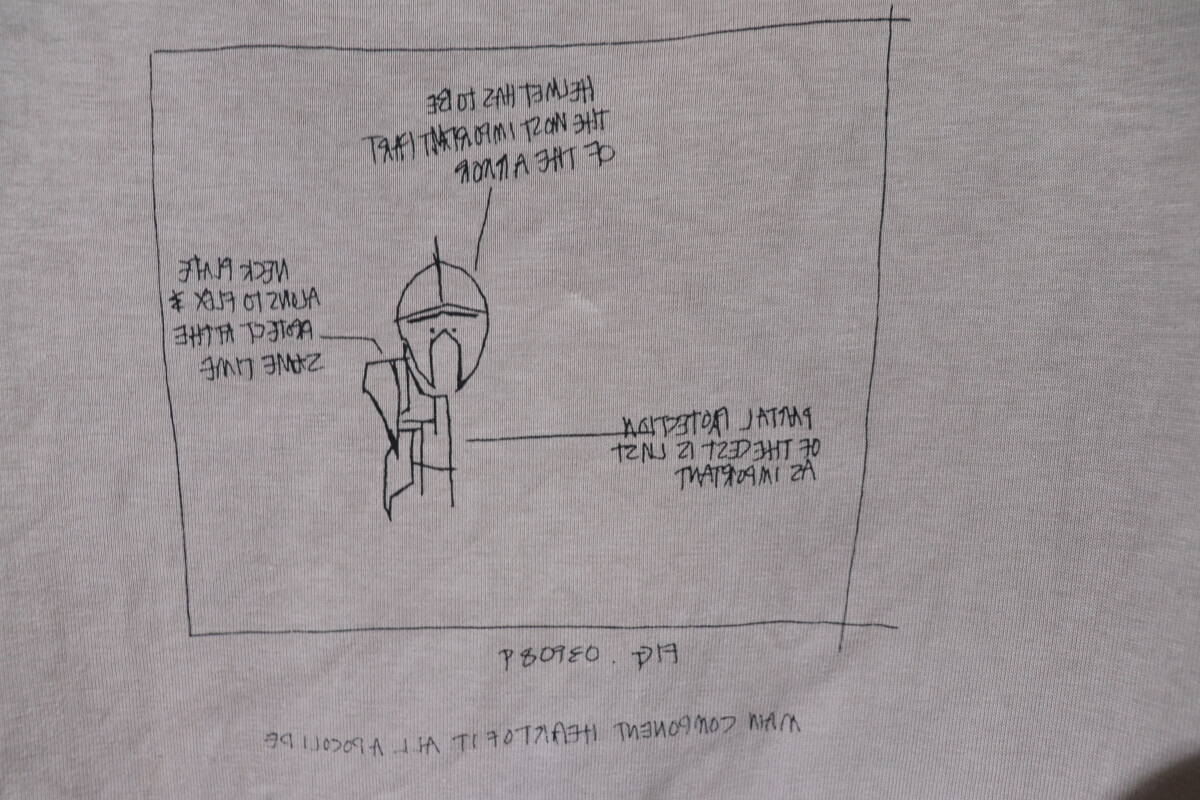 HELMET HAS TO BE
THE MOST IMPORTANT PART
OF THE ARMOR
NECK PLATE
ALOWS TO FLEX &
PROTECT AT THE
SAME TIME
PARTAL PROTECTION
OF THE CEST IS JUST
AS IMPORTANT
FIG.
MAIN COMPONENT HEART OF IT ALL